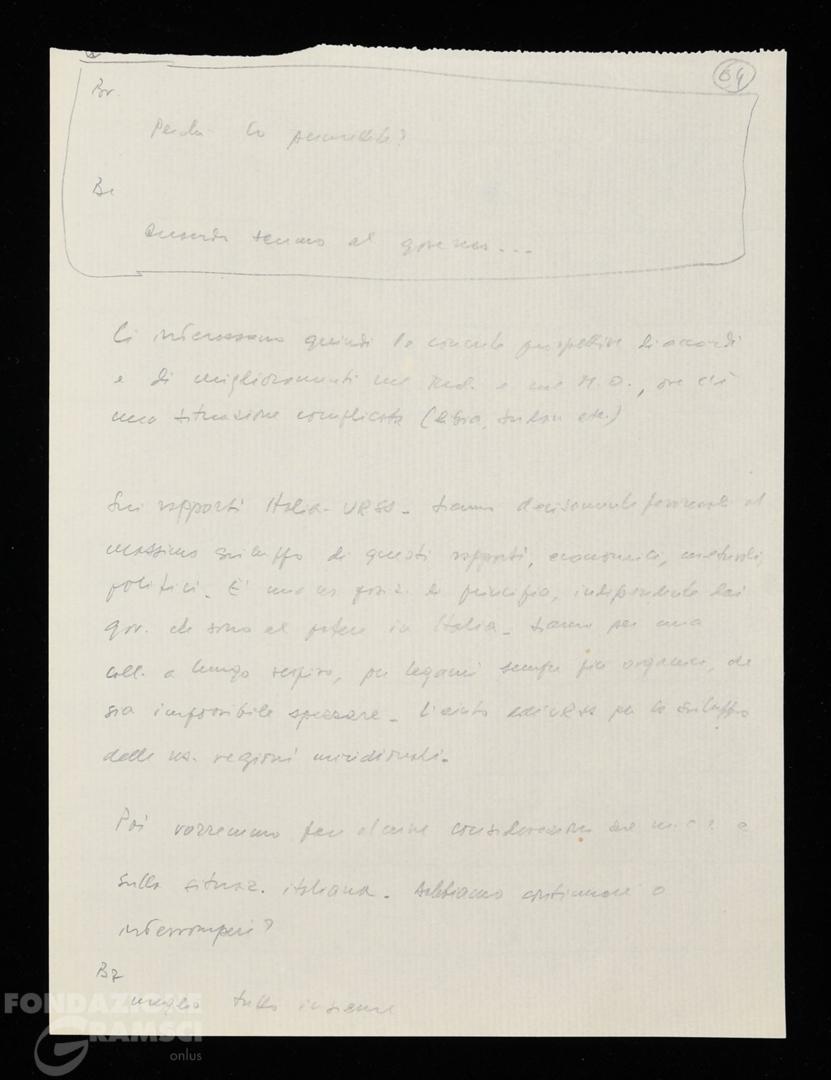 64
Br.
Perché lo permettete?
Be
Quando saremo al governo...
Ci interessano quindi le concrete prospettive di accordi
e di miglioramenti nel Med. e nel M.O., ove c'è
una situazione complicata (Libia, Sudan etc.)
Sui rapporti Italia-URSS - siamo decisamente favorevoli al
massimo sviluppo di questi rapporti, economici, culturali,
politici. E' una ns posiz. di principio, indipendente dai
gov. che sono al potere in Italia - siamo per una
coll. a lungo respiro, per legami sempre più organici, che
sia impossibile spezzare - L'aiuto dell'URSS per lo sviluppo
delle ns. regioni meridionali.
Poi vorremmo fare alcune considerazioni sul e
sulla situaz. italiana - Dobbiamo continuare o
interrompere?
meglio tutto insieme
FONDAZIONE
GRAMSCI
onlus